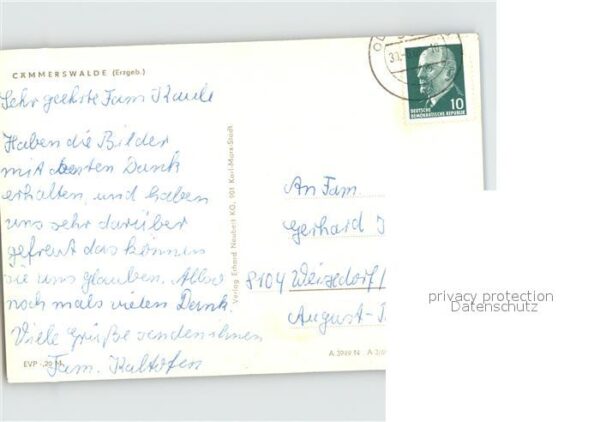 CÄMMERSWALDE (Erzgeb.)
Sehr geehrte Fam Kaule
Haben die Bilder
mit besten Dank
erhalten, und haben
uns sehr darüber
gefreut das können
sie uns glauben. Also
noch mals vielen Dank.
Viele Grüße senden ihnen
Fam. Kaltofen
EVP -,20 M
Verlag Erhard Neubert KG, 901 Karl-Marx-Stadt
10
DEUTSCHE
DEMOKRATISCHE REPUBLIK
An Fam.
Gerhard
8104 Weixdorf/
August-
A 3969 N
privacy protection
Datenschutz